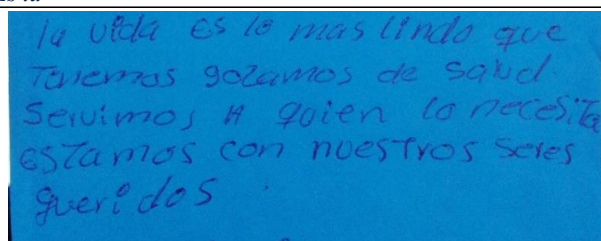 la vida es lo mas lindo que
Tenemos gozamos de salud.
Servimos A quien lo necesita
estamos con nuestros seres
queridos.